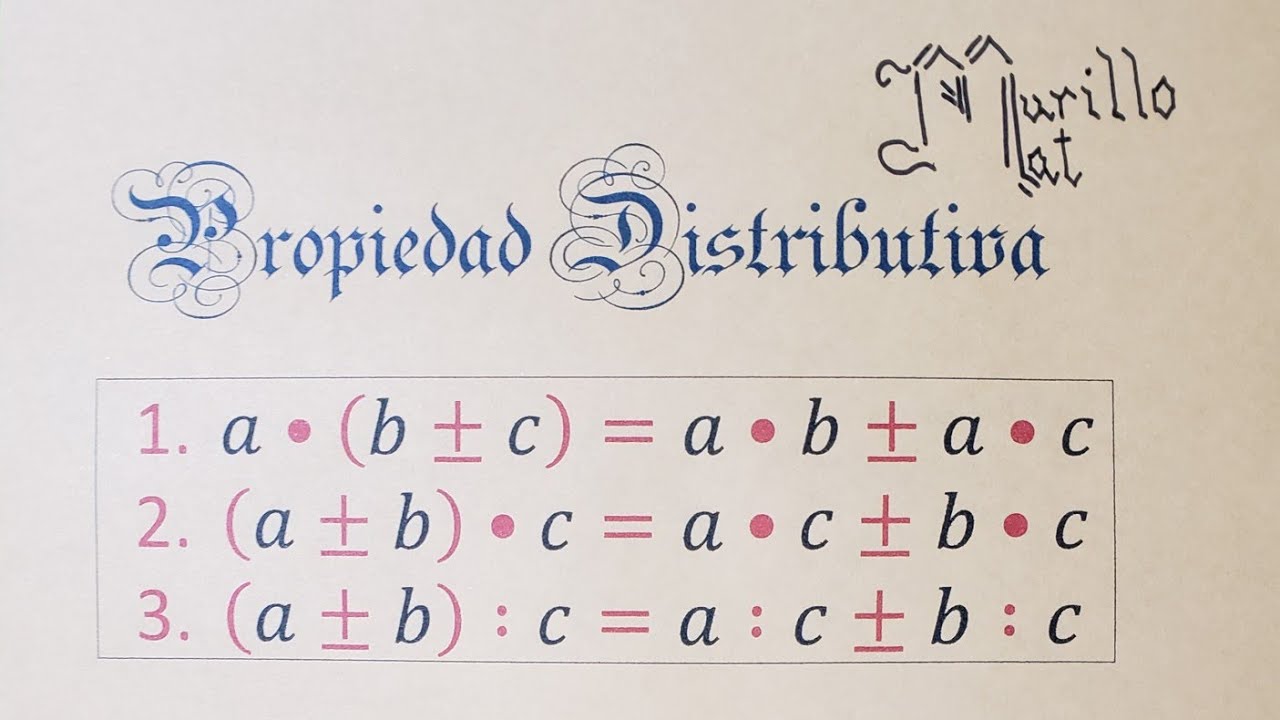 Murillo
Mat
Propiedad Distributiva
1. a • (b ± c) = a • b ± a • c
2. (a ± b) • c = a • c ± b • c
3. (a ± b) : c = a : c ± b : c